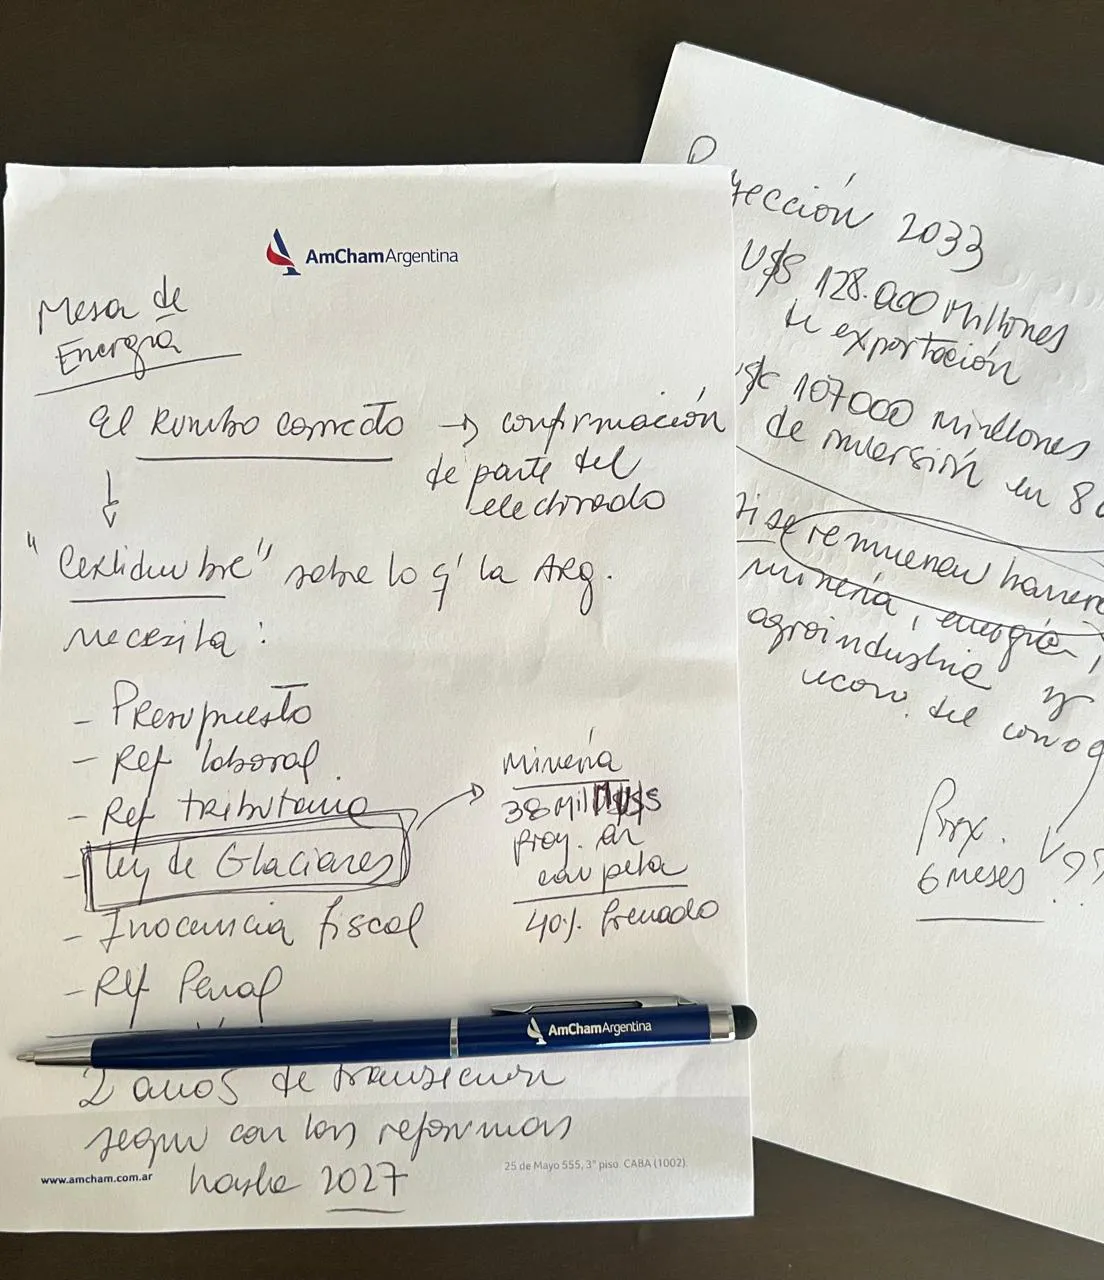 AmChamArgentina
Mesa de
Energía
El Rumbo correcto → confirmación
de parte del
electorado
"Certidumbre" sobre lo q' la Arg.
necesita:
- Presupuesto
- Ref laboral.
- Ref tributaria
- Ley de Glaciares
- Inocencia fiscal
- Ref Penal
Minería
38 Mil M U$S
Proy. en
carpeta
40% frenado
AmChamArgentina
2 años de transición
seguir con las reformas
hasta 2027
www.amcham.com.ar
25 de Mayo 555, 3° piso. CABA (1002).
yección 2033
U$S 128.000 Millones
de exportación
107000 Millones
de inversión en 8
si se remueven barrer
minería, energía,
agroindustria y
econ. del cono
Prox.
6 meses